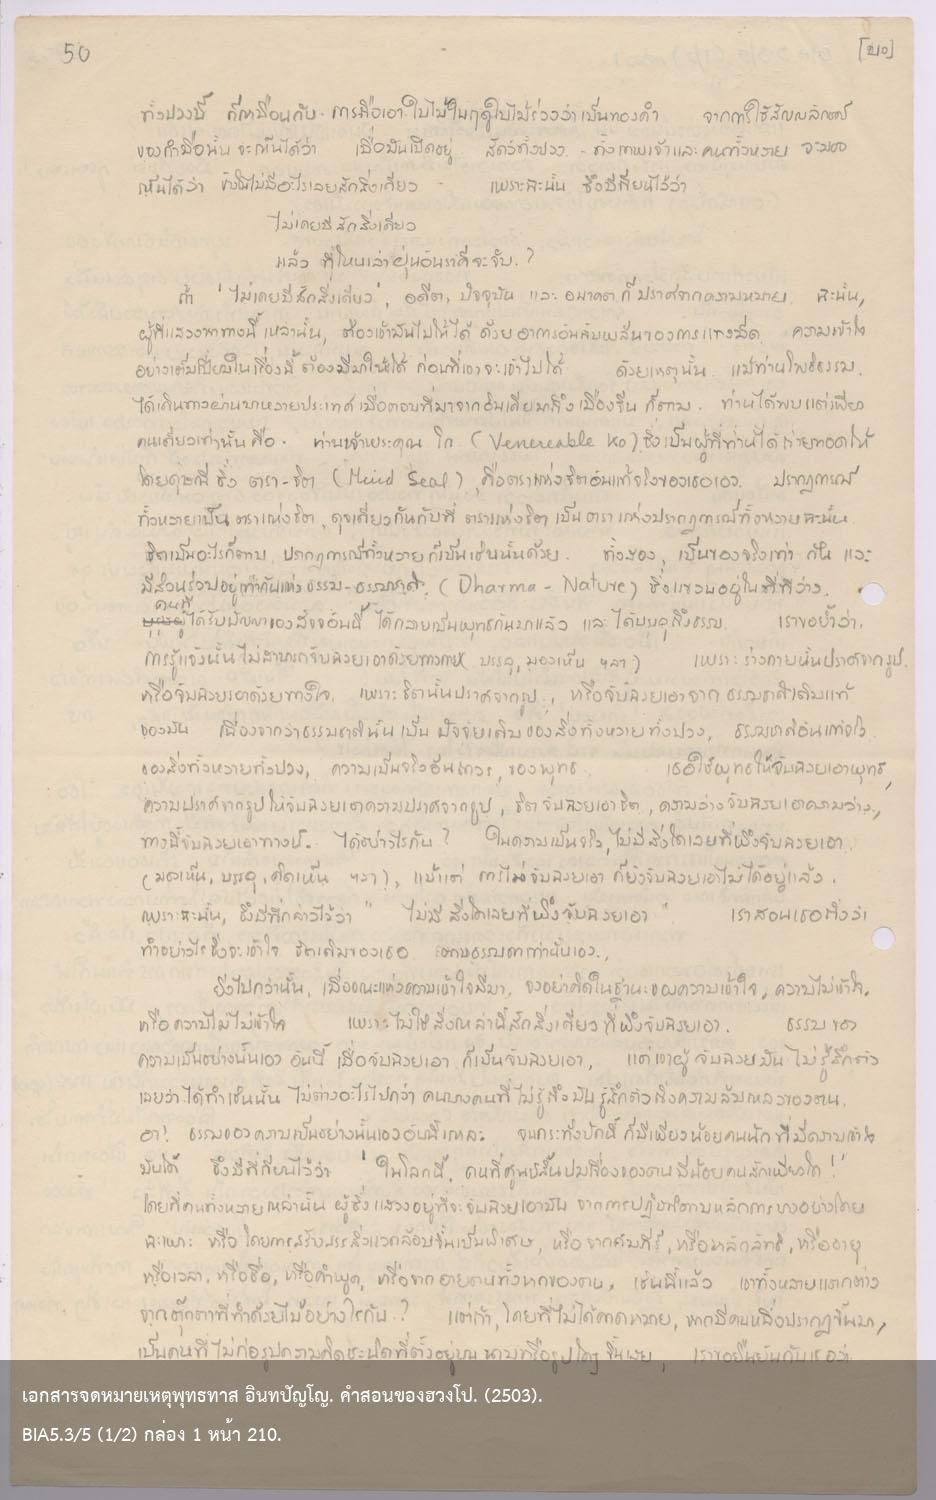 50
[๒๑๐]
ทั้งปวงนี้ ก็เหมือนกับ การถือเอาใบไม้ในฤดูใบไม้ร่วงว่าเป็นทองคำ จากการใช้สัญญลักษณ์
ของกำมือนั้น จะเห็นได้ว่า เมื่อมันเปิดอยู่ สัตว์ทั้งปวง - ทั้งเทพเจ้าและคนทั้งหลาย จะมอง
เห็นได้ว่า ข้างในไม่มีอะไรเลยสักสิ่งเดียว - เพราะฉะนั้น จึงมีเขียนไว้ว่า
ไม่เคยมีสักสิ่งเดียว
แล้ว ที่ไหนเล่าฝุ่นอันธาดีจะจับ.?
ถ้า 'ไม่เคยมีสักสิ่งเดียว', อดีต, ปัจจุบัน และ อนาคต ก็ปราศจากความหมาย. ฉะนั้น,
ผู้ที่แสวงหาทางนี้ เหล่านั้น, ต้องเข้ามันไปให้ได้ ด้วย อาการอันฉับพลันของการแทงมีด. ความเข้าใจ
อย่างเต็มเปี่ยมในเรื่องนี้ ต้องมีมาให้ได้ ก่อนที่เขาจะเข้าไปได้ ด้วยเหตุนั้น แม้ท่านโพธิธรรม.
ได้เดินทางผ่านมาหลายประเทศ เมื่อตอนที่มาจากอินเดียมาถึง เมืองจีน ก็ตาม. ท่านได้พบแต่เพียง
คนเดียวเท่านั้น คือ. ท่านเจ้าพระคุณ โก (Venereable Ko) ซึ่งเป็นผู้ที่ท่านได้ถ่ายทอดให้
โดยดุษณี ซึ่ง ตรา-จิต (Mind Seal), คือตราแห่งจิตอันแท้จริงของเธอเอง. ปรากฏการณ์
ทั้งหลายเป็น ตราแห่งจิต, ดุจเดียวกันกับที่ ตราแห่งจิต เป็นตราแห่งปรากฏการณ์ทั้งหลาย ฉะนั้น.
จิตเป็นอะไรก็ตาม, ปรากฏการณ์ทั้งหลาย ก็เป็นเช่นนั้นด้วย. ทั้งสอง, เป็นของจริงเท่า กัน และ
มีส่วนร่วมอยู่เท่ากันแห่ง ธรรม-ธรรมชาติ, (Dharma-Nature) ซึ่งแขวนอยู่ในที่ที่ว่าง.
คนที่
ได้รับปัญญาของสัจจอันนี้ ได้กลายเป็นพุทธกันมาแล้ว และ ได้บรรลุถึงธรรม. เราขอย้ำว่า.
การรู้แจ้งนั้น ไม่สามารถจับฉวยเอาด้วยทางกาย (บรรลุ, มองเห็น ฯลฯ) เพราะร่างกายนั้นปราศจากรูป.
หรือจับฉวยเอาด้วยทางใจ. เพราะจิตนั้นปราศจากรูป., หรือจับฉวยเอาจาก ธรรมชาติเดิมแท้
ของมัน เนื่องจากว่าธรรมชาตินั้น เป็น ปัจจัยเดิม ของสิ่งทั้งหลายทั้งปวง, ธรรมชาติอันแท้จริง
ของสิ่งทั้งหลายทั้งปวง, ความเป็นจริงอันถาวร, ของพุทธ. เธอใช้พุทธให้จับฉวยเอาพุทธ,
ความปราศจากรูปให้จับฉวยเอาความปราศจากรูป, จิต จับฉวยเอาจิต, ความว่างจับฉวยเอาความว่าง,
ทางนี้จับฉวยเอาทางนี้. ได้อย่างไรกัน? ในความเป็นจริง, ไม่มีสิ่งใดเลยที่พึงจับฉวยเอา.
(มองเห็น, บรรลุ, คิดเห็น ฯลฯ), แม้แต่ การไม่จับฉวยเอา ก็ยังจับฉวยเอาไม่ได้อยู่แล้ว.
เพราะฉะนั้น, จึงมีที่กล่าวไว้ว่า " ไม่มีสิ่งใดเลยที่พึงจับฉวยเอา " เราสอนเธอถึงว่า
ทำอย่างไรจึงจะเข้าใจ จิตเดิมของเธอ เท่านั้นเอง.,
ยิ่งไปกว่านั้น, เมื่อขณะแห่งความเข้าใจมีมา, จงอย่าคิดในฐานะของความเข้าใจ, ความไม่เข้าใจ,
หรือ ความไม่ไม่เข้าใจ เพราะไม่ใช่สิ่งเหล่านี้สักสิ่งเดียว ที่พึงจับฉวยเอา. ธรรมของ
ความเป็นอย่างนั้นเอง อันนี้ เมื่อจับฉวยเอา ก็เป็นจับฉวยเอา, แต่เขาผู้จับฉวยมัน ไม่รู้สึกตัว
เลยว่าได้ทำเช่นนั้น ไม่ต่างอะไรไปกว่า คนบางคนที่ไม่รู้ถึงมัน รู้สึกตัวถึงความล้มเหลวของตน.
อา! ธรรมของความเป็นอย่างนั้นเองอันนี้แหละ จนกระทั่งบัดนี้ ก็มีเพียงน้อยคนนัก ที่มีความเข้าใจ
มันได้ จึงมีที่เขียนไว้ว่า 'ในโลกนี้, คนที่สูญสิ้นปมเขื่องของตน มีน้อยคนสักเพียงใด!'
โดยที่คนทั้งหลายเหล่านั้น ผู้ซึ่งแสวงอยู่ที่จะจับฉวยเอามัน จากการปฏิบัติตามหลักการบางอย่างโดย
เฉพาะ หรือ โดยการสร้างสรรสิ่งแวดล้อมขึ้นเป็นพิเศษ, หรือจากคัมภีร์, หรือหลักลัทธิ, หรืออายุ
หรือเวลา, หรือชื่อ, หรือคำพูด, หรือจากอายตนทั้งหกของตน, เช่นนี้แล้ว เขาทั้งหลายแตกต่าง
จากตุ๊กตาที่ทำด้วยไม้อย่างไรกัน? แต่ถ้า, โดยที่ไม่ได้คาดหมาย, หากมีคนหนึ่งปรากฏขึ้นมา,
เป็นคนที่ไม่ก่อรูปความคิดชนิดที่ตั้งอยู่บน นามหรือรูปใดๆ ขึ้นเลย, เราขอยืนยันกับเธอว่า
เอกสารจดหมายเหตุพุทธทาส อินทปัญโญ. คำสอนของฮวงโป. (2503).
BIA5.3/5 (1/2) กล่อง 1 หน้า 210.